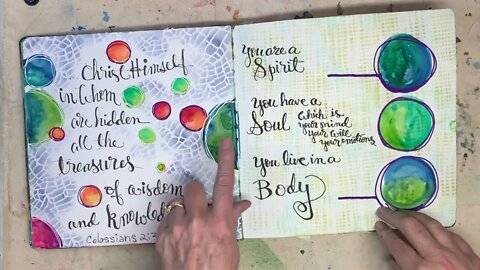 Christ Himself
in Whom
are hidden
all the
treasures
of wisdom
and Knowled
Colossians 2:3
you are a
Spirit
you have a
Soul which is
your mind
your will
your emotions
you live in a
Body